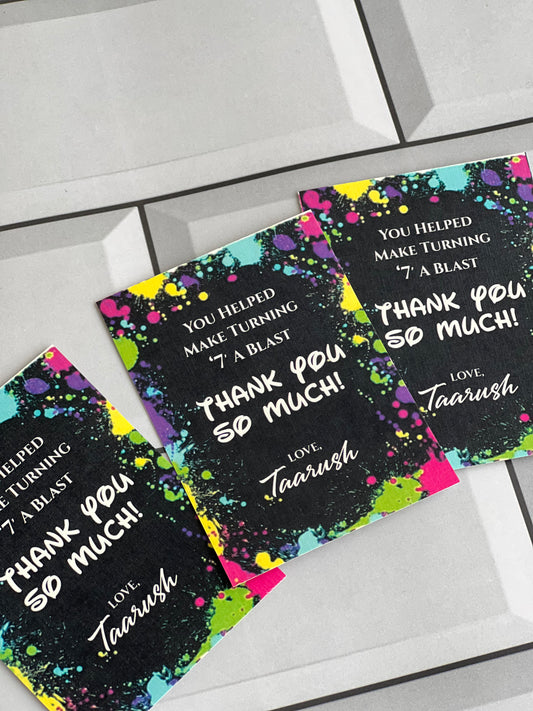 You Helped
Make Turning
'7' A Blast
THANK YOU
SO MUCH!
LOVE,
Taarush
You Helped
Make Turning
'7' A Blast
THANK YOU
SO MUCH!
LOVE,
Taarush
Helped
Turning
'7' A Blast
THANK YOU
SO MUCH!
LOVE,
Taarush